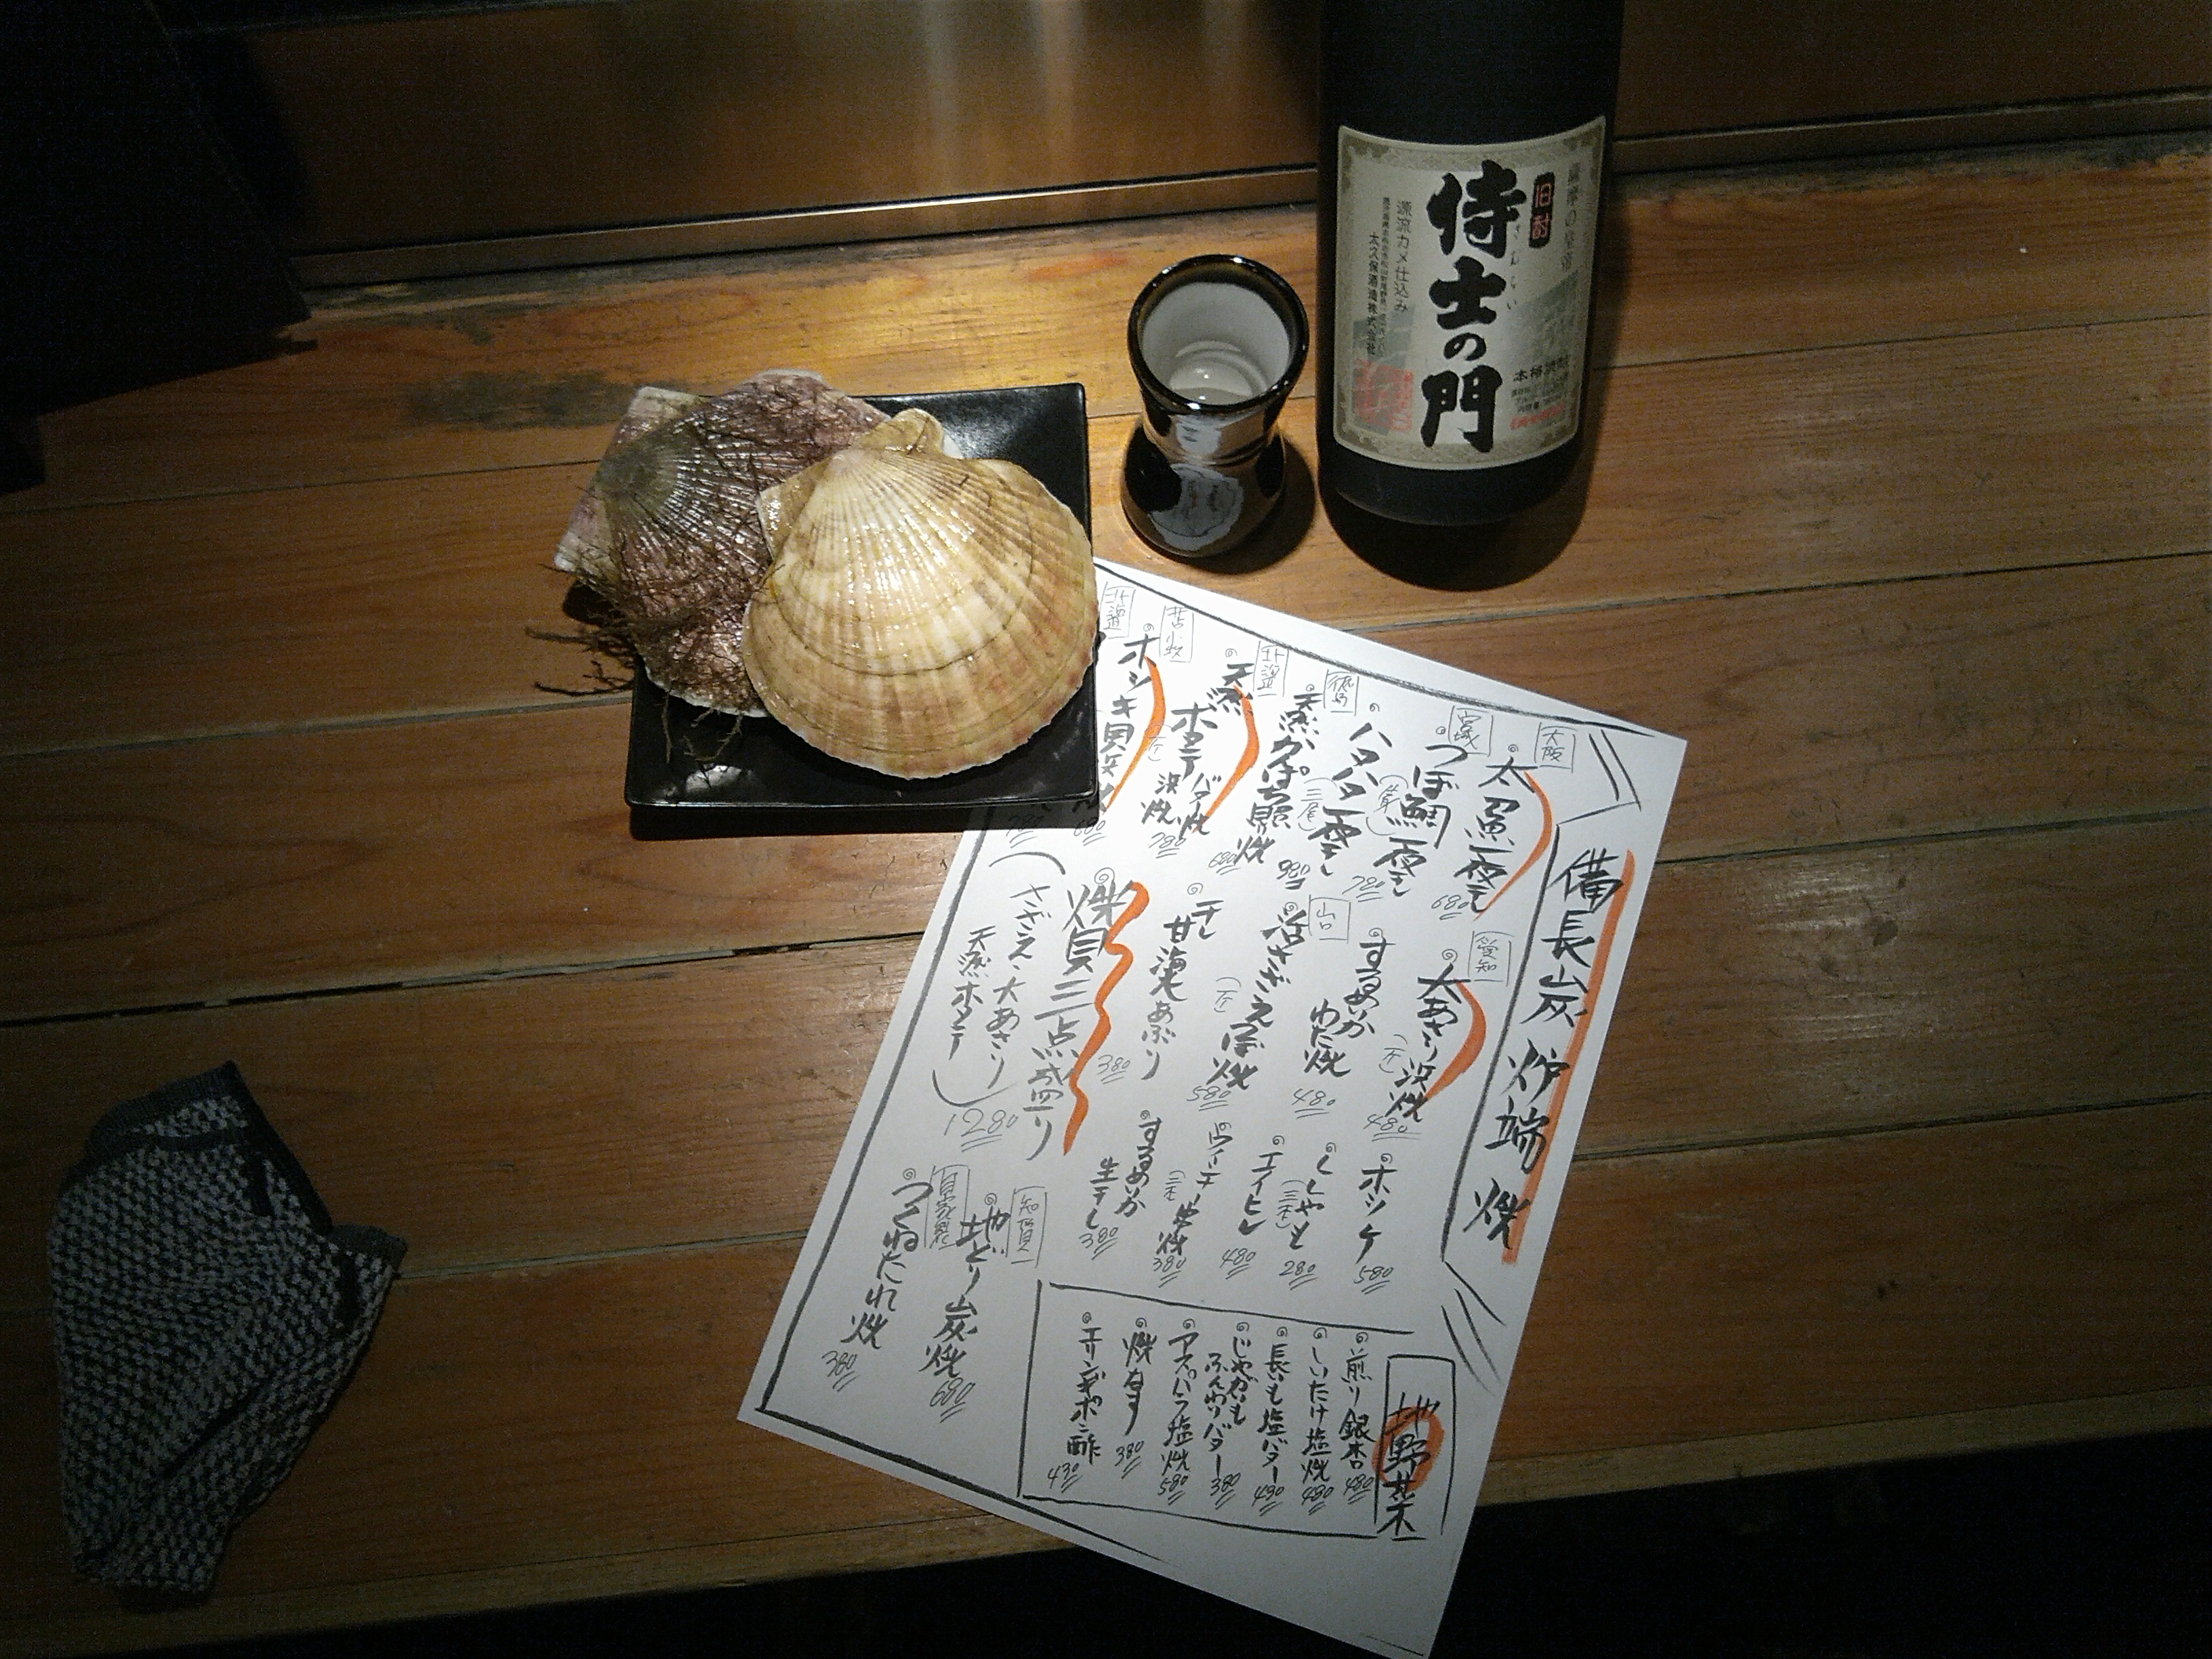 旧酎
侍士の門
さむらい
源流カメ仕込み
太久保酒造株式会社
本格焼酎
備長炭炉端焼
大阪
太魚一夜干し
680
宮城
つぼ鯛一夜干し
ハタハタ一夜干し
(三尾)
720
徳島
天然かんぱち
980
北海道
天然ホタテ
バター焼
浜焼
780
苫小牧
ホッキ貝
680
北海道
愛知
大あさり浜焼
480
するめいか
わた焼
480
山口
活さざえつぼ焼
580
干し甘海老あぶり
380
焼貝三点盛り
(さざえ、大あさり
天然ホタテ)
1280
ホッケ
580
ししゃも
(三本)
280
エイヒレ
480
ウインナー串焼
(三本)
380
するめいか
生干し
380
地どり炭焼
680
自家製
つくねたれ焼
380
地野菜
煎り銀杏
480
しいたけ塩焼
480
長いも塩バター
490
じゃがいも
ふんわりバター
380
アスパラ塩焼
580
焼なす
380
エリンギポン酢
430